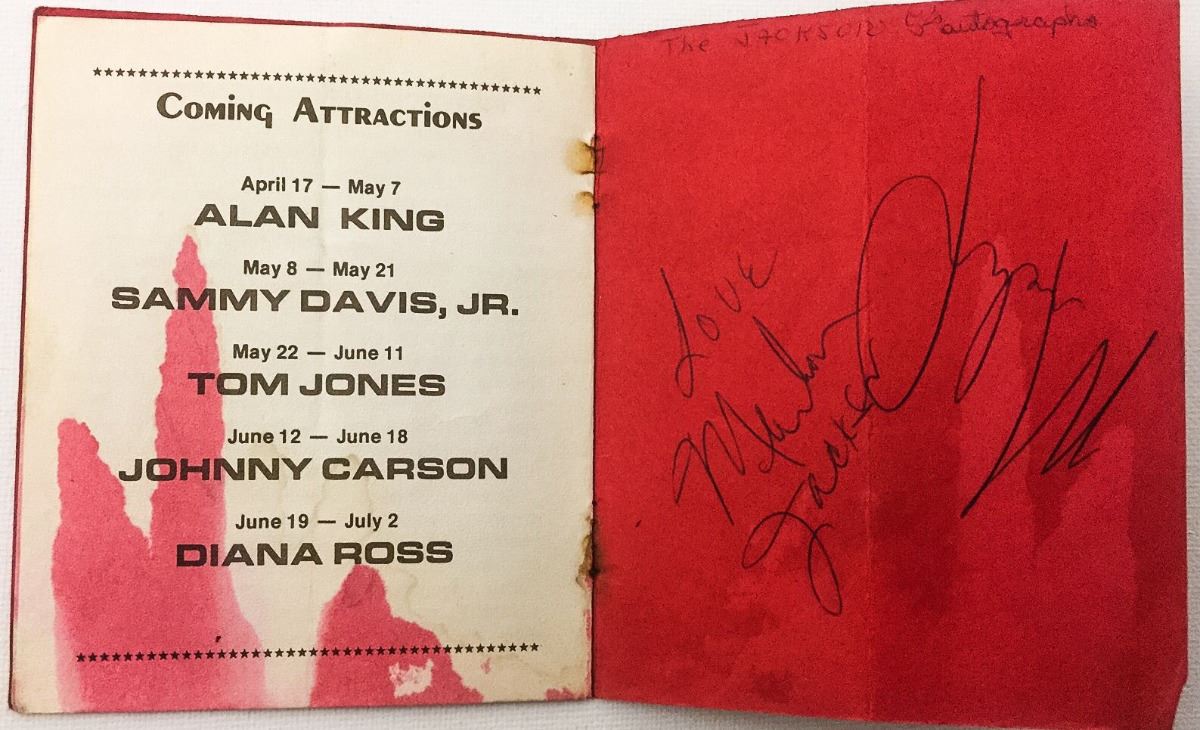 ************************************************************
Coming Attractions
April 17 — May 7
ALAN KING
May 8 — May 21
SAMMY DAVIS, JR.
May 22 — June 11
TOM JONES
June 12 — June 18
JOHNNY CARSON
June 19 — July 2
DIANA ROSS
************************************************************
The JACKSON 5's autographs
Love
Jackson